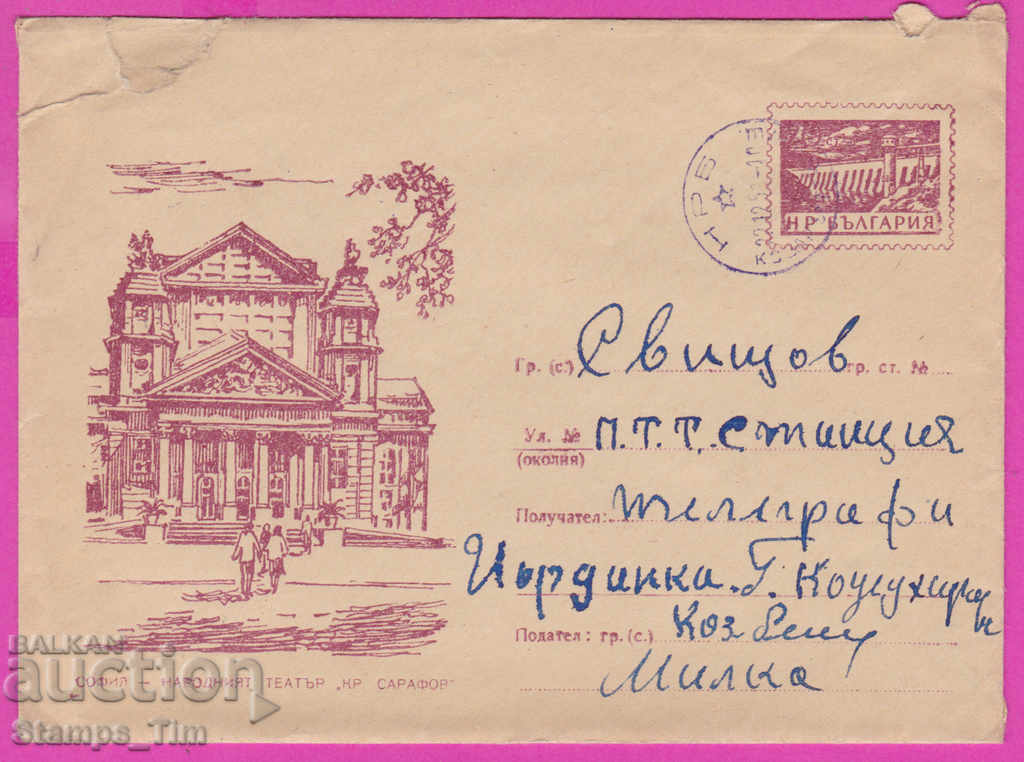 НРБ
Н Р БЪЛГАРИЯ
Гр. (с.) Свищов гр. ст. №
Ул. № П.Т.Т. станция
(околия)
Получател: телеграфи
Йорданка. Г.
Подател: гр. (с.)
Милка
СОФИЯ — НАРОДНИЯТ ТЕАТЪР „КР. САРАФОВ"
BALKAN
auction
Stamps_Tim